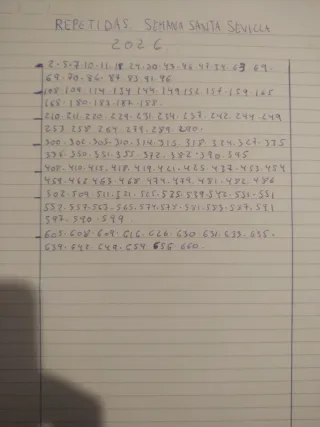 REPETIDAS SEMANA SANTA SEVILLA
2026
- 2-5-7-10-11-18-24-30-43-46-47-54-63-69-
69-70-86-87-93-91-96
108-109-114-134-144-149-156-157-159-165
168-180-183-187-188-
210-211-220-229-231-234-237-242-244-249
253-258-264-279-289-290-
300-302-303-310-314-315-318-324-327-335
336-350-351-355-372-382-390-395
408-410-415-418-419-421-425-437-453-454
459-462-463-468-474-479-481-482-486
502-509-511-521-525-535-539-542-551-551
557-559-563-565-574-575-581-583-587-591
597-590-599-
- 603-608-609-616-626-630-631-633-635-
639-645-649-654-656-660-